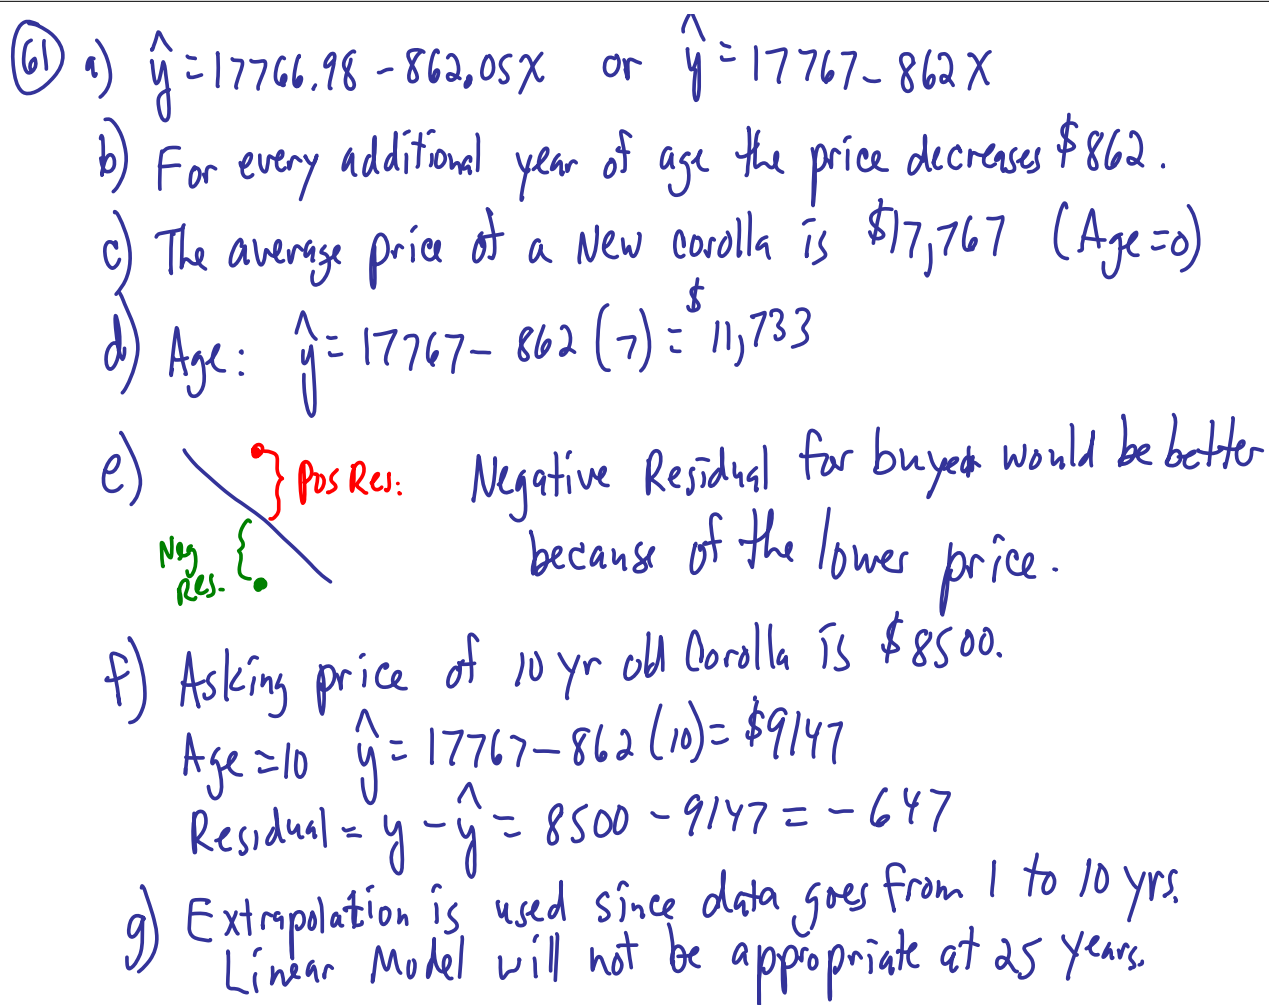 61 a) ŷ = 17766.98 - 862.05x or ŷ = 17767 - 862x
b) For every additional year of age the price decreases $862.
c) The average price of a New corolla is $17,767 (Age=0)
d) Age: ŷ = 17767 - 862 (7) = $11,733
e) Pos Res. Negative Residual for buyer would be better
Neg Res. because of the lower price.
f) Asking price of 10 yr old Corolla is $8500.
Age = 10 ŷ = 17767 - 862 (10) = $9147
Residual = y - ŷ = 8500 - 9147 = -647
g) Extrapolation is used since data goes from 1 to 10 yrs.
Linear Model will not be appropriate at 25 years.